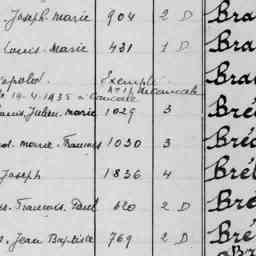 Joseph Marie 904 2 D Bra
Louis-Marie 431 1 D Bra
Exempté Bra
le 19-4-1935 à Cancale
Julien, Marie 1029 3 Bré
Marie-François 1030 3 Bré
Joseph 1836 4 Brél
François-Paul 620 2 D Bré
Jean Baptiste 769 2 D Bré
Br